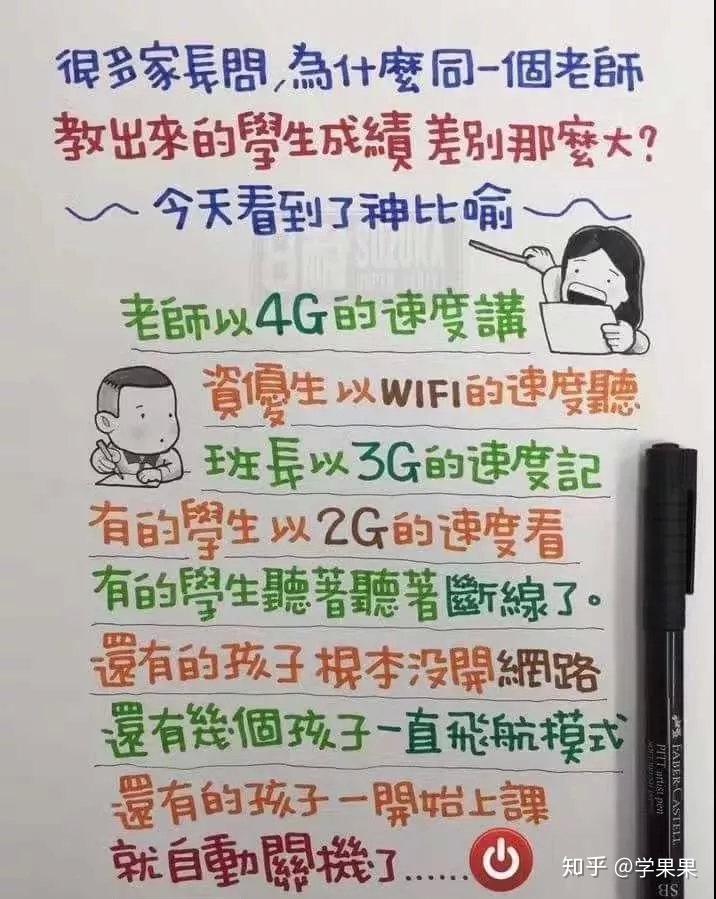 很多家長問,為什麼同一個老師
教出來的學生成績差別那麼大?
今天看到了神比喻
老師以4G的速度講
資優生以WIFI的速度聽
班長以3G的速度記
有的學生以2G的速度看
有的學生聽著聽著斷線了。
還有的孩子根本没開網路
還有幾個孩子一直飛航模式
還有的孩子一開始上課
就自動關機了......
FABER-CASTELL
PITT artist pen
SB
知乎 @学果果